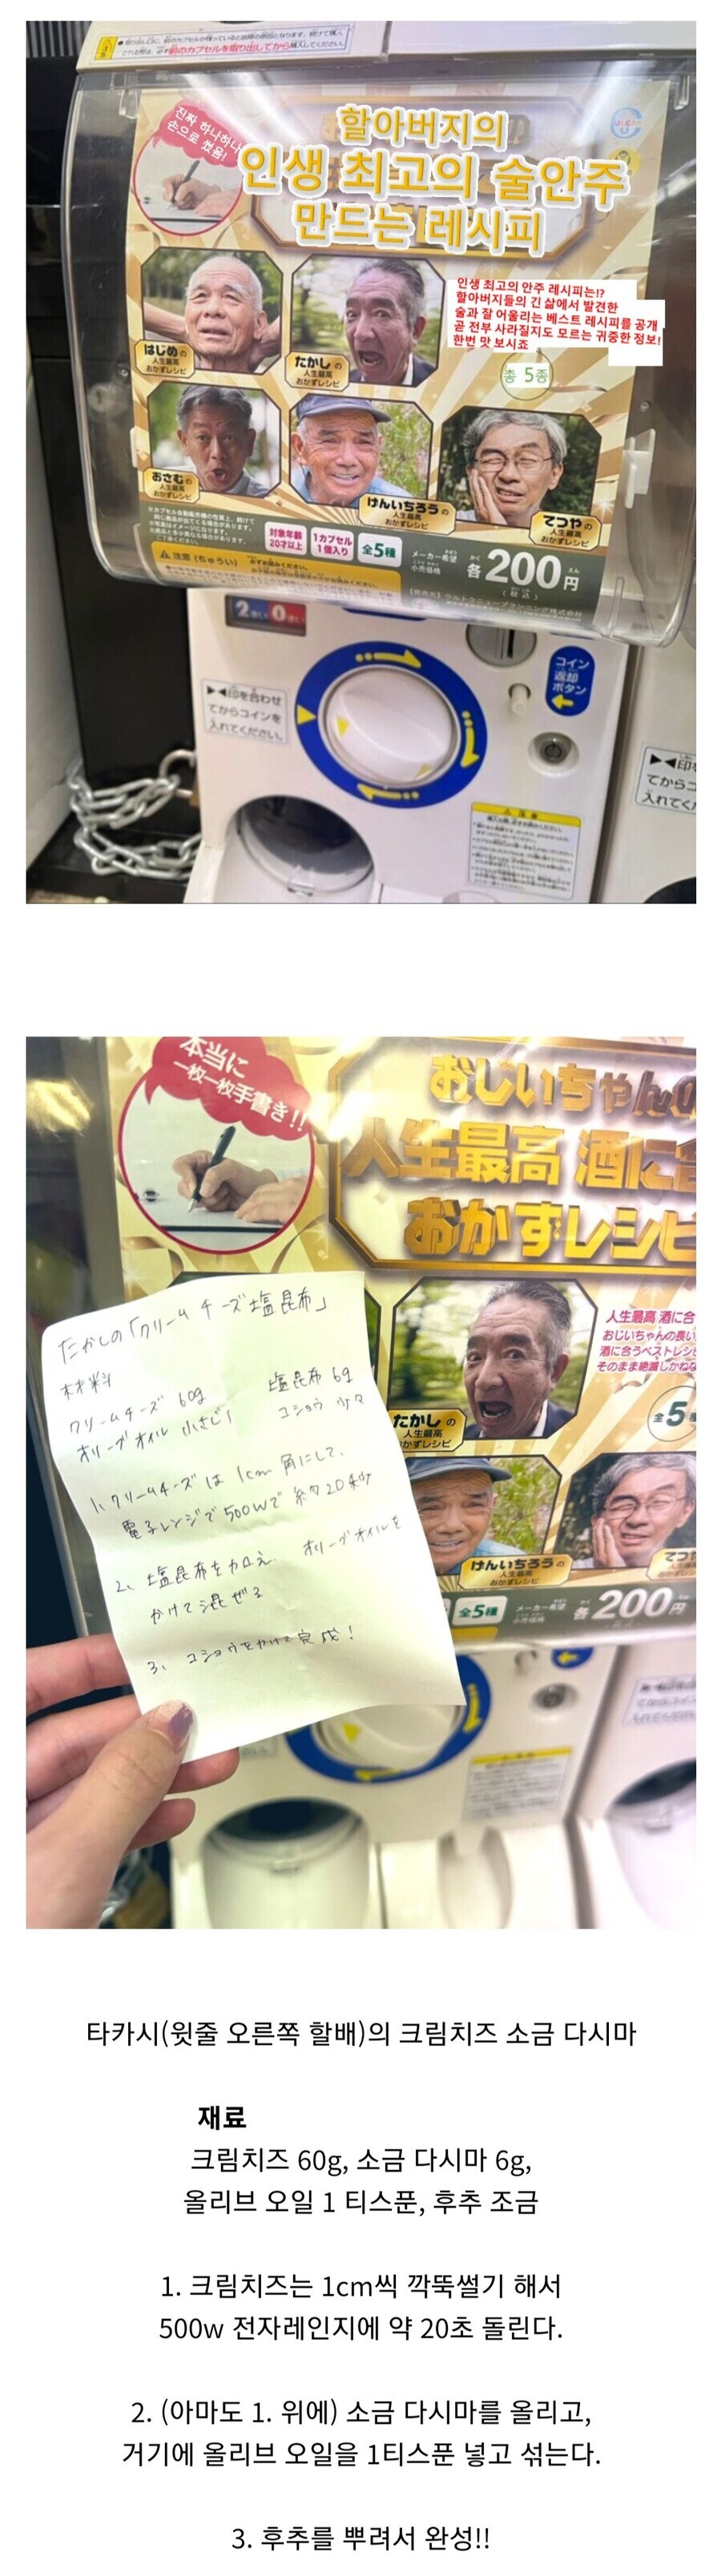 前のカプセルを取り出してから購入してください。
진짜 하나하나
손으로 썼음!
할아버지의
인생 최고의 술안주
만드는 레시피
인생 최고의 안주 레시피는!?
할아버지들의 긴 삶에서 발견한
술과 잘 어울리는 베스트 레시피를 공개
곧 전부 사라질지도 모르는 귀중한 정보!
한번 맛 보시죠
총 5종
はじめの
人生最高
おかずレシピ
たかしの
人生最高
おかずレシピ
おさむの
人生最高
おかずレシピ
けんいちろうの
人生最高
おかずレシピ
てつやの
人生最高
おかずレシピ
対象年齢
20才以上
1カプセル
1個入り
全5種
メーカー希望
小売価格
各200円
(税込)
注意(ちゅうい)
コイン
返却
ボタン
▶◀印を合わせ
てからコインを
入れてください。
▶◀印を
てからコ
入れてく
本当に
一枚一枚手書き!!
おじいちゃんの
人生最高 酒に合
おかずレシピ
人生最高 酒に合
おじいちゃんの長い
酒に合うベストレシピ
そのまま絶滅しかねな
全5種
たかしの
人生最高
おかずレシピ
けんいちろうの
人生最高
おかずレシピ
てつ
全5種
メーカー希望
小売価格
各200円
たかしの「クリームチーズ塩昆布」
材料
クリームチーズ 60g 塩昆布 6g
オリーブオイル 小さじ1 コショウ 少々
1、クリームチーズは 1cm 角にして、
電子レンジで500Wで 約20秒
2、塩昆布を加え オリーブオイルを
かけて混ぜる
3、コショウをかけて完成!
타카시(윗줄 오른쪽 할배)의 크림치즈 소금 다시마
재료
크림치즈 60g, 소금 다시마 6g,
올리브 오일 1 티스푼, 후추 조금
1. 크림치즈는 1cm씩 깍뚝썰기 해서
500w 전자레인지에 약 20초 돌린다.
2. (아마도 1. 위에) 소금 다시마를 올리고,
거기에 올리브 오일을 1티스푼 넣고 섞는다.
3. 후추를 뿌려서 완성!!